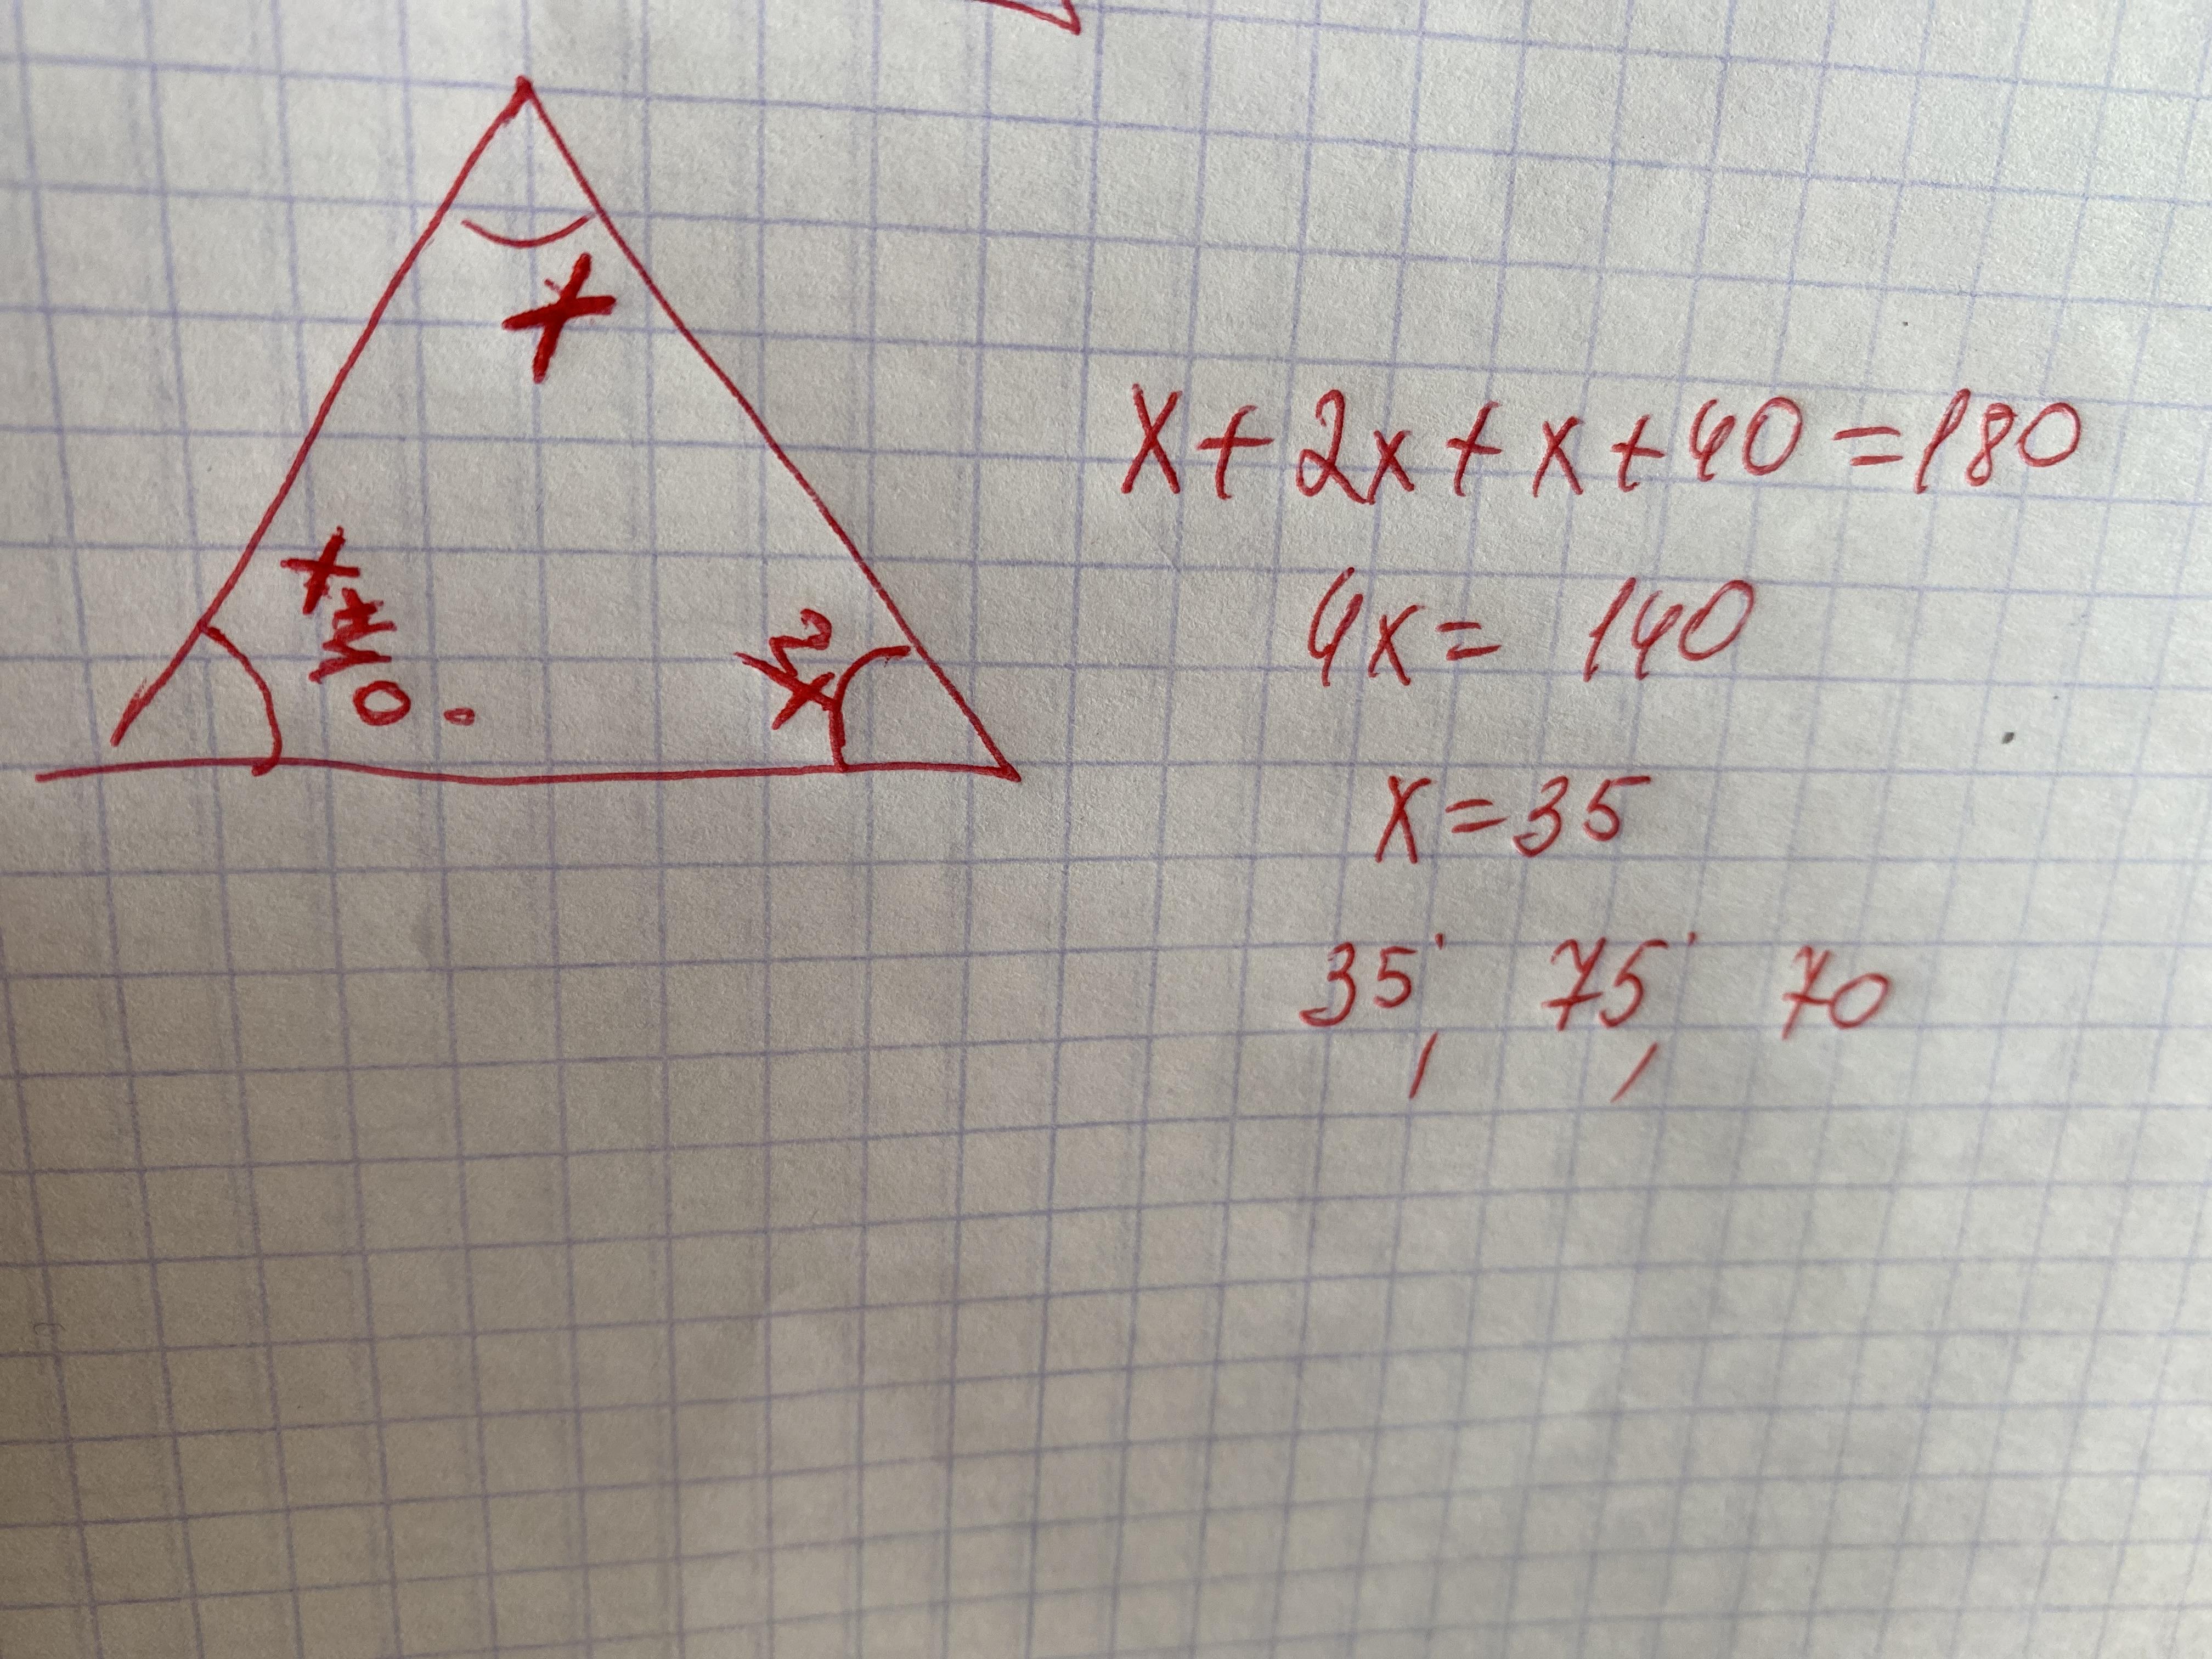 x
x+40°
2x
x+2x+x+40=180
4x=140
x=35
35; 75; 70